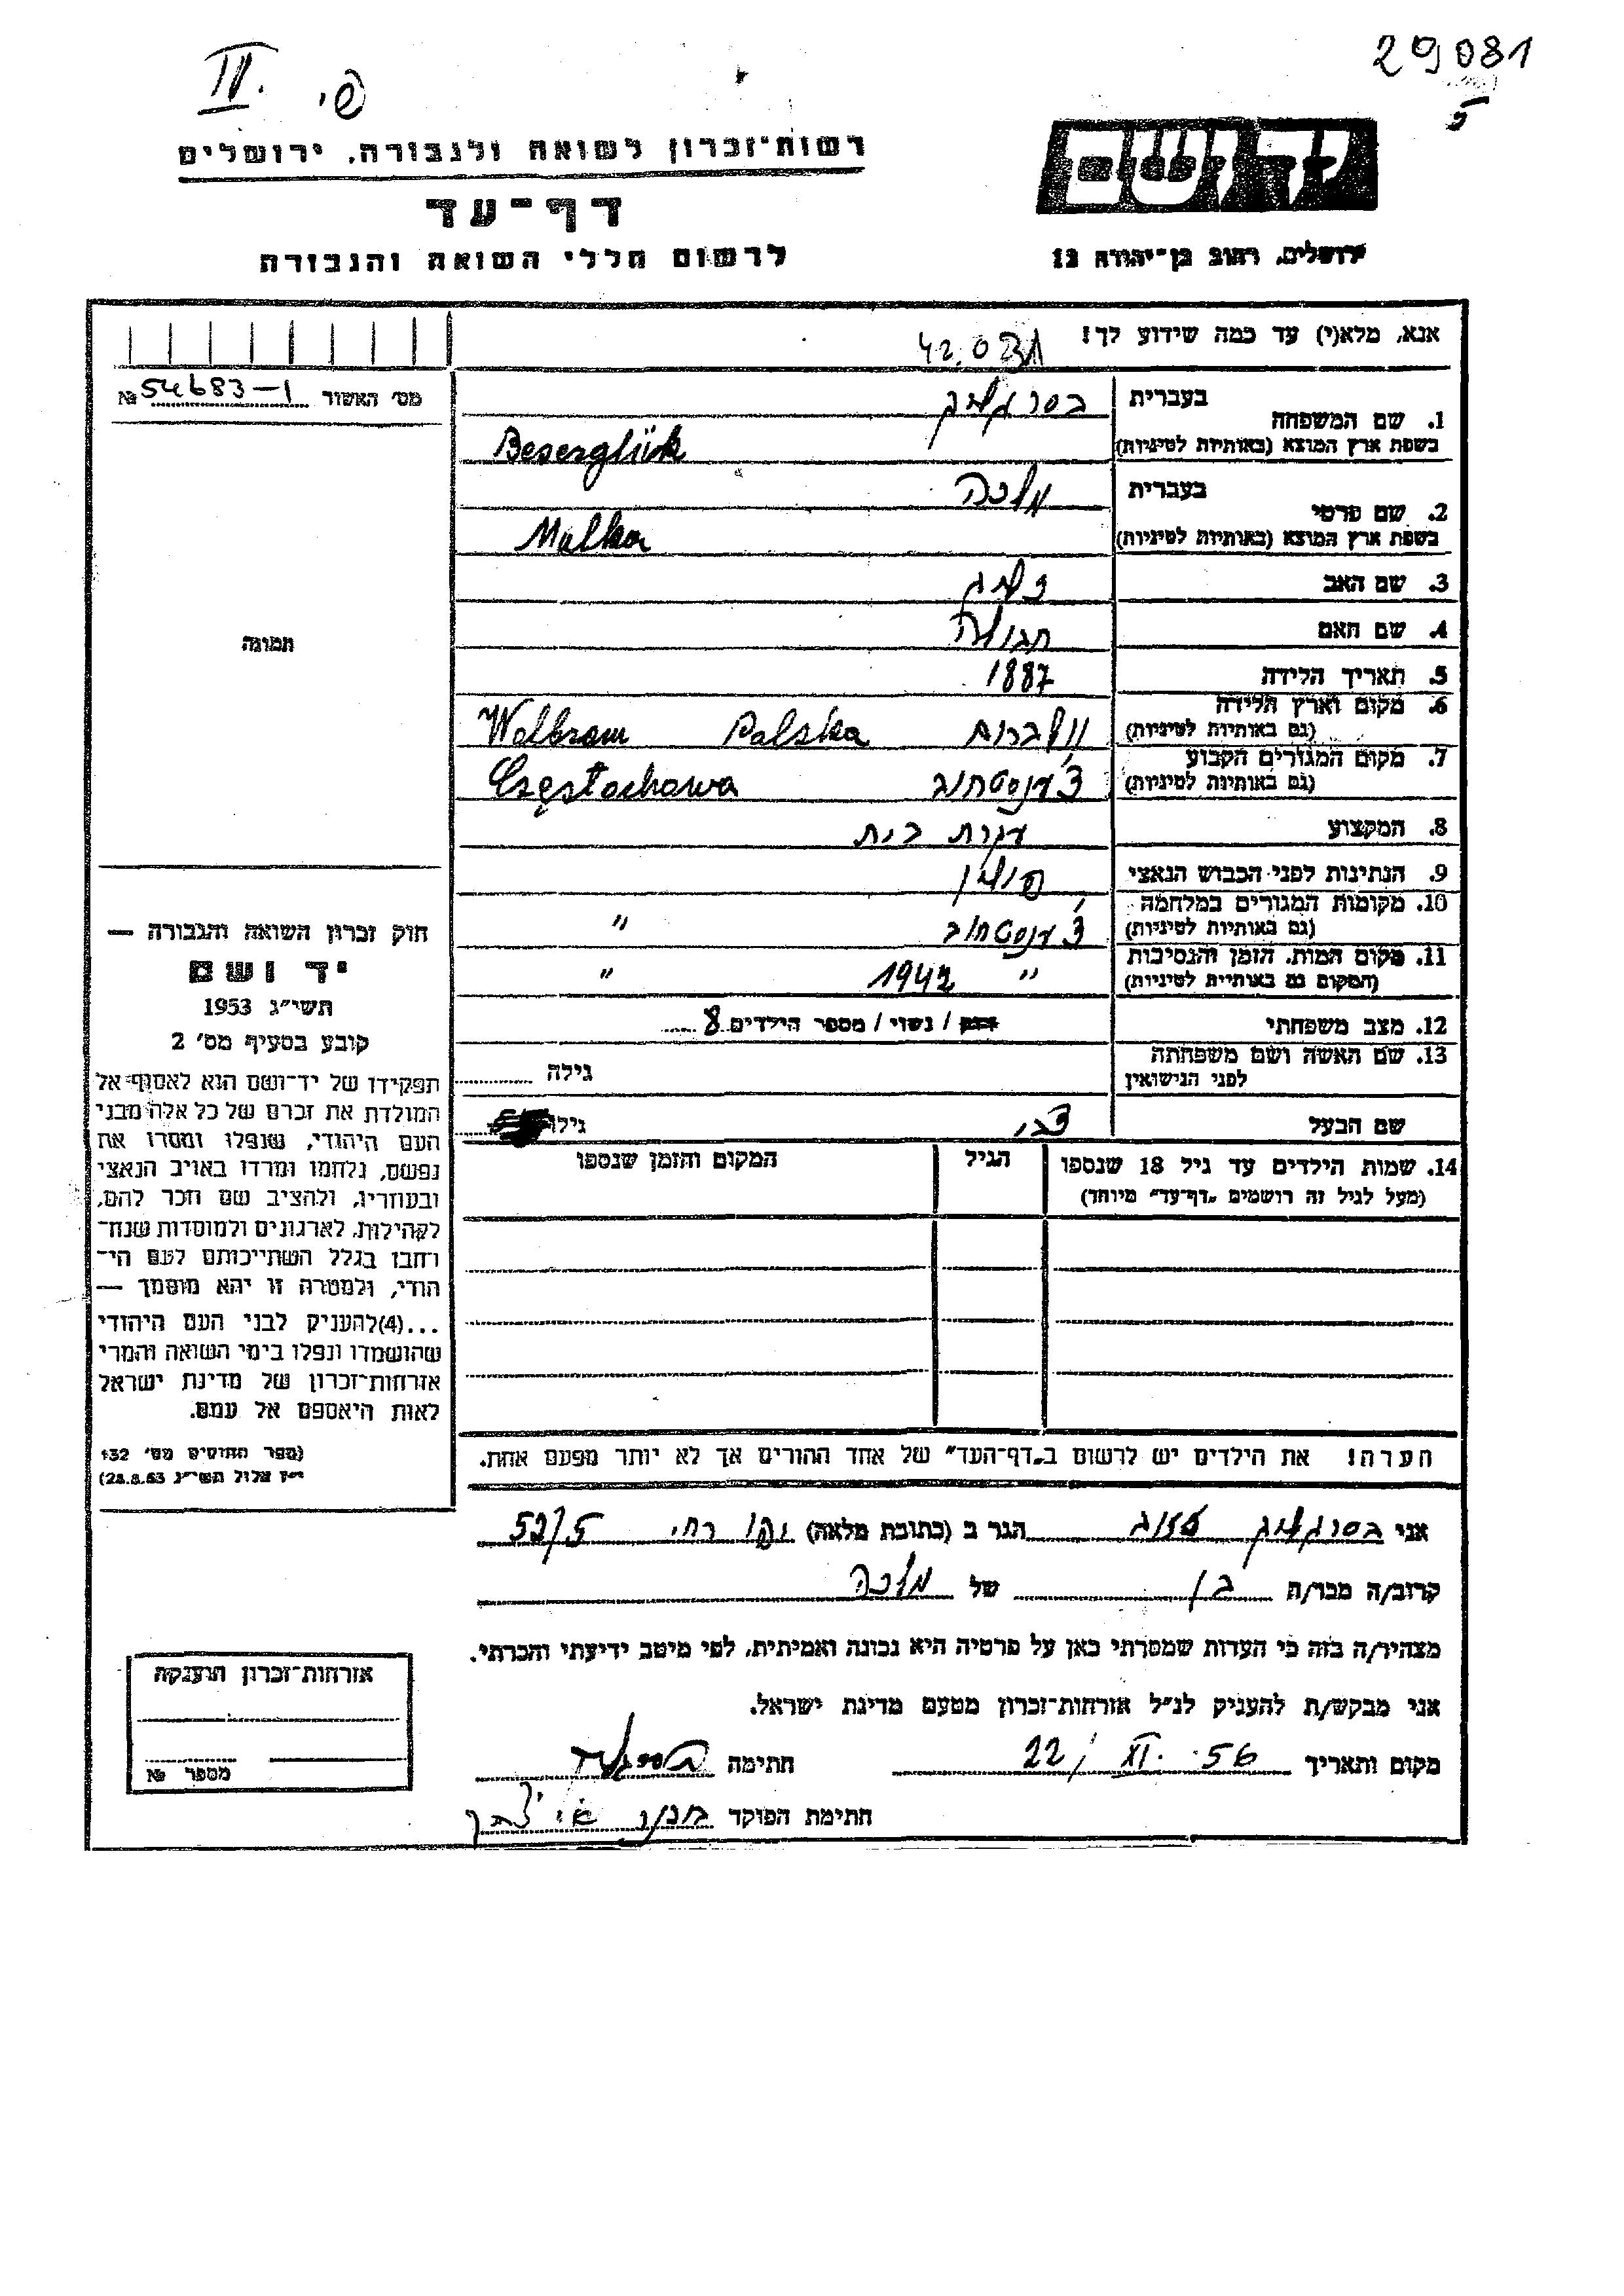 29081
IV.
רשות־זכרון לשואה ולגבורה, ירושלים
דף־עד
לרשום חללי השואה והגבורה
יד ושם
ירושלים, רחוב בן־יהודה 12
אנא, מלא(י) עד כמה שידוע לך!
מס' האשור № 54683-1
1. שם המשפחה
בעברית
בשפת ארץ המוצא (באותיות לטיניות) Beserglük
2. שם פרטי
בעברית מלכה
בשפת ארץ המוצא (באותיות לטיניות) Malka
3. שם האב
4. שם האם
5. תאריך הלידה 1887
6. מקום וארץ הלידה
(גם באותיות לטיניות) וולברום Polska Wolbrom
7. מקום המגורים הקבוע
(גם באותיות לטיניות) צ'נסטחוב Częstochowa
8. המקצוע עקרת בית
9. הנתינות לפני הכבוש הנאצי פולין
10. מקומות המגורים במלחמה
(גם באותיות לטיניות) צ'נסטחוב "
11. מקום המות, הזמן והנסיבות
(המקום גם באותיות לטיניות) " 1942 "
12. מצב משפחתי רווק / נשוי / מספר הילדים 8
13. שם האשה ושם משפחתה
לפני הנישואין
גילה
שם הבעל צבי גילו
14. שמות הילדים עד גיל 18 שנספו
(מעל לגיל זה רושמים "דף־עד" מיוחד)
הגיל
המקום והזמן שנספו
הערה! את הילדים יש לרשום ב"דף־העד" של אחד ההורים אך לא יותר מפעם אחת.
תמונה
חוק זכרון השואה והגבורה —
יד ושם
תשי"ג 1953
קובע בסעיף מס' 2
תפקידו של יד־ושם הוא לאסוף אל
המולדת את זכרם של כל אלה מבני
העם היהודי, שנפלו ומסרו את
נפשם, נלחמו ומרדו באויב הנאצי
ובעוזריו, ולהציב שם וזכר להם,
לקהילות, לארגונים ולמוסדות שנח־
רבו בגלל השתייכותם לעם הי־
הודי, ולמטרה זו יהא מוסמך —
...(4)להעניק לבני העם היהודי
שהושמדו ונפלו בימי השואה והמרי
אזרחות־זכרון של מדינת ישראל
לאות היאספם אל עמם.
(ספר החוקים מס' 132
י"ז אלול תשי"ג 28.8.53)
אני הגר ב (כתובת מלאה) 52/5
קרוב/ה מבר/ת בן של מלכה
מצהיר/ה בזה כי העדות שמסרתי כאן על פרטיה היא נכונה ואמיתית, לפי מיטב ידיעתי והכרתי.
אני מבקש/ת להעניק לנ"ל אזרחות־זכרון מטעם מדינת ישראל.
מקום ותאריך 22/XI.56 חתימה
חתימת הפוקד
אזרחות־זכרון הוענקה
מספר №